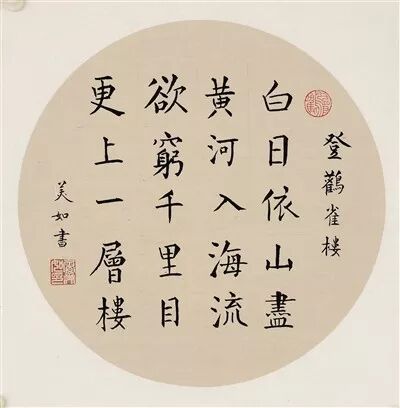 登鸛雀樓
白日依山盡
黃河入海流
欲窮千里目
更上一層樓
美如書